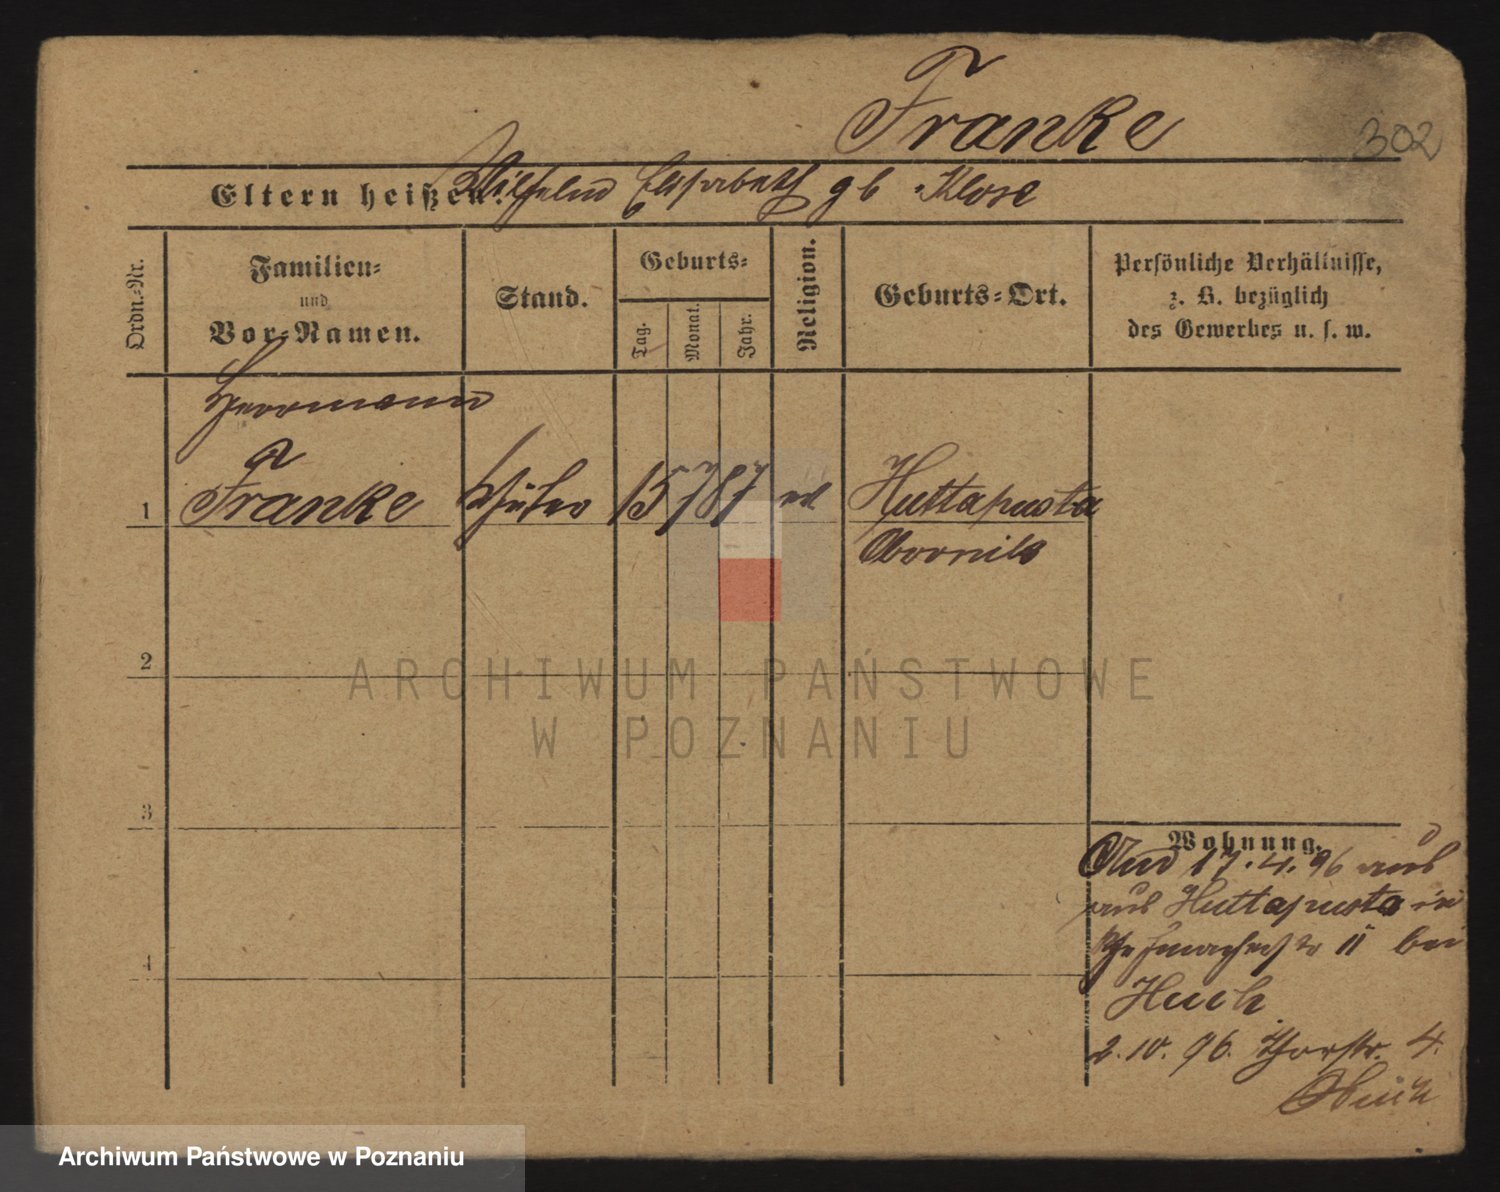 Franke
302
Eltern heißen: Wilhelm Elisabeth gb Klose
Ordn.-Nr.
Familien-
und
Vor-Namen.
Stand.
Geburts-
Tag.
Monat.
Jahr.
Religion.
Geburts-Ort.
Persönliche Verhältnisse,
z. B. bezüglich
des Gewerbes u. s. w.
Herrmann
1 Franke Schüler 15 7 87 ev Huttapusta
Obornik
2
3
4
Wohnung.
17.4.96 aus
aus Huttapusta in
11 bei
Huch
2.10.96. Thorstr. 4.
ARCHIWUM PAŃSTWOWE
W POZNANIU
Archiwum Państwowe w Poznaniu